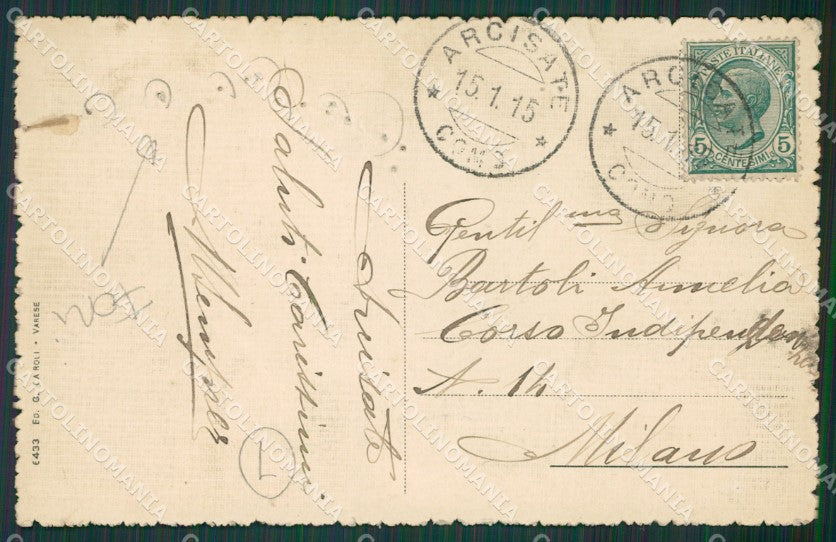 ARCISATE
15.1.15
COMO
ARCISATE
15.1.15
COMO
POSTE ITALIANE
5 5
CENTESIMI
Gentil ma Signora
Bartoli Amelia
Corso Indipendenza
N. 14
Milano
Saluti Carissimi
6433 ED. G. CAROLI - VARESE
CARTOLINOMANIA